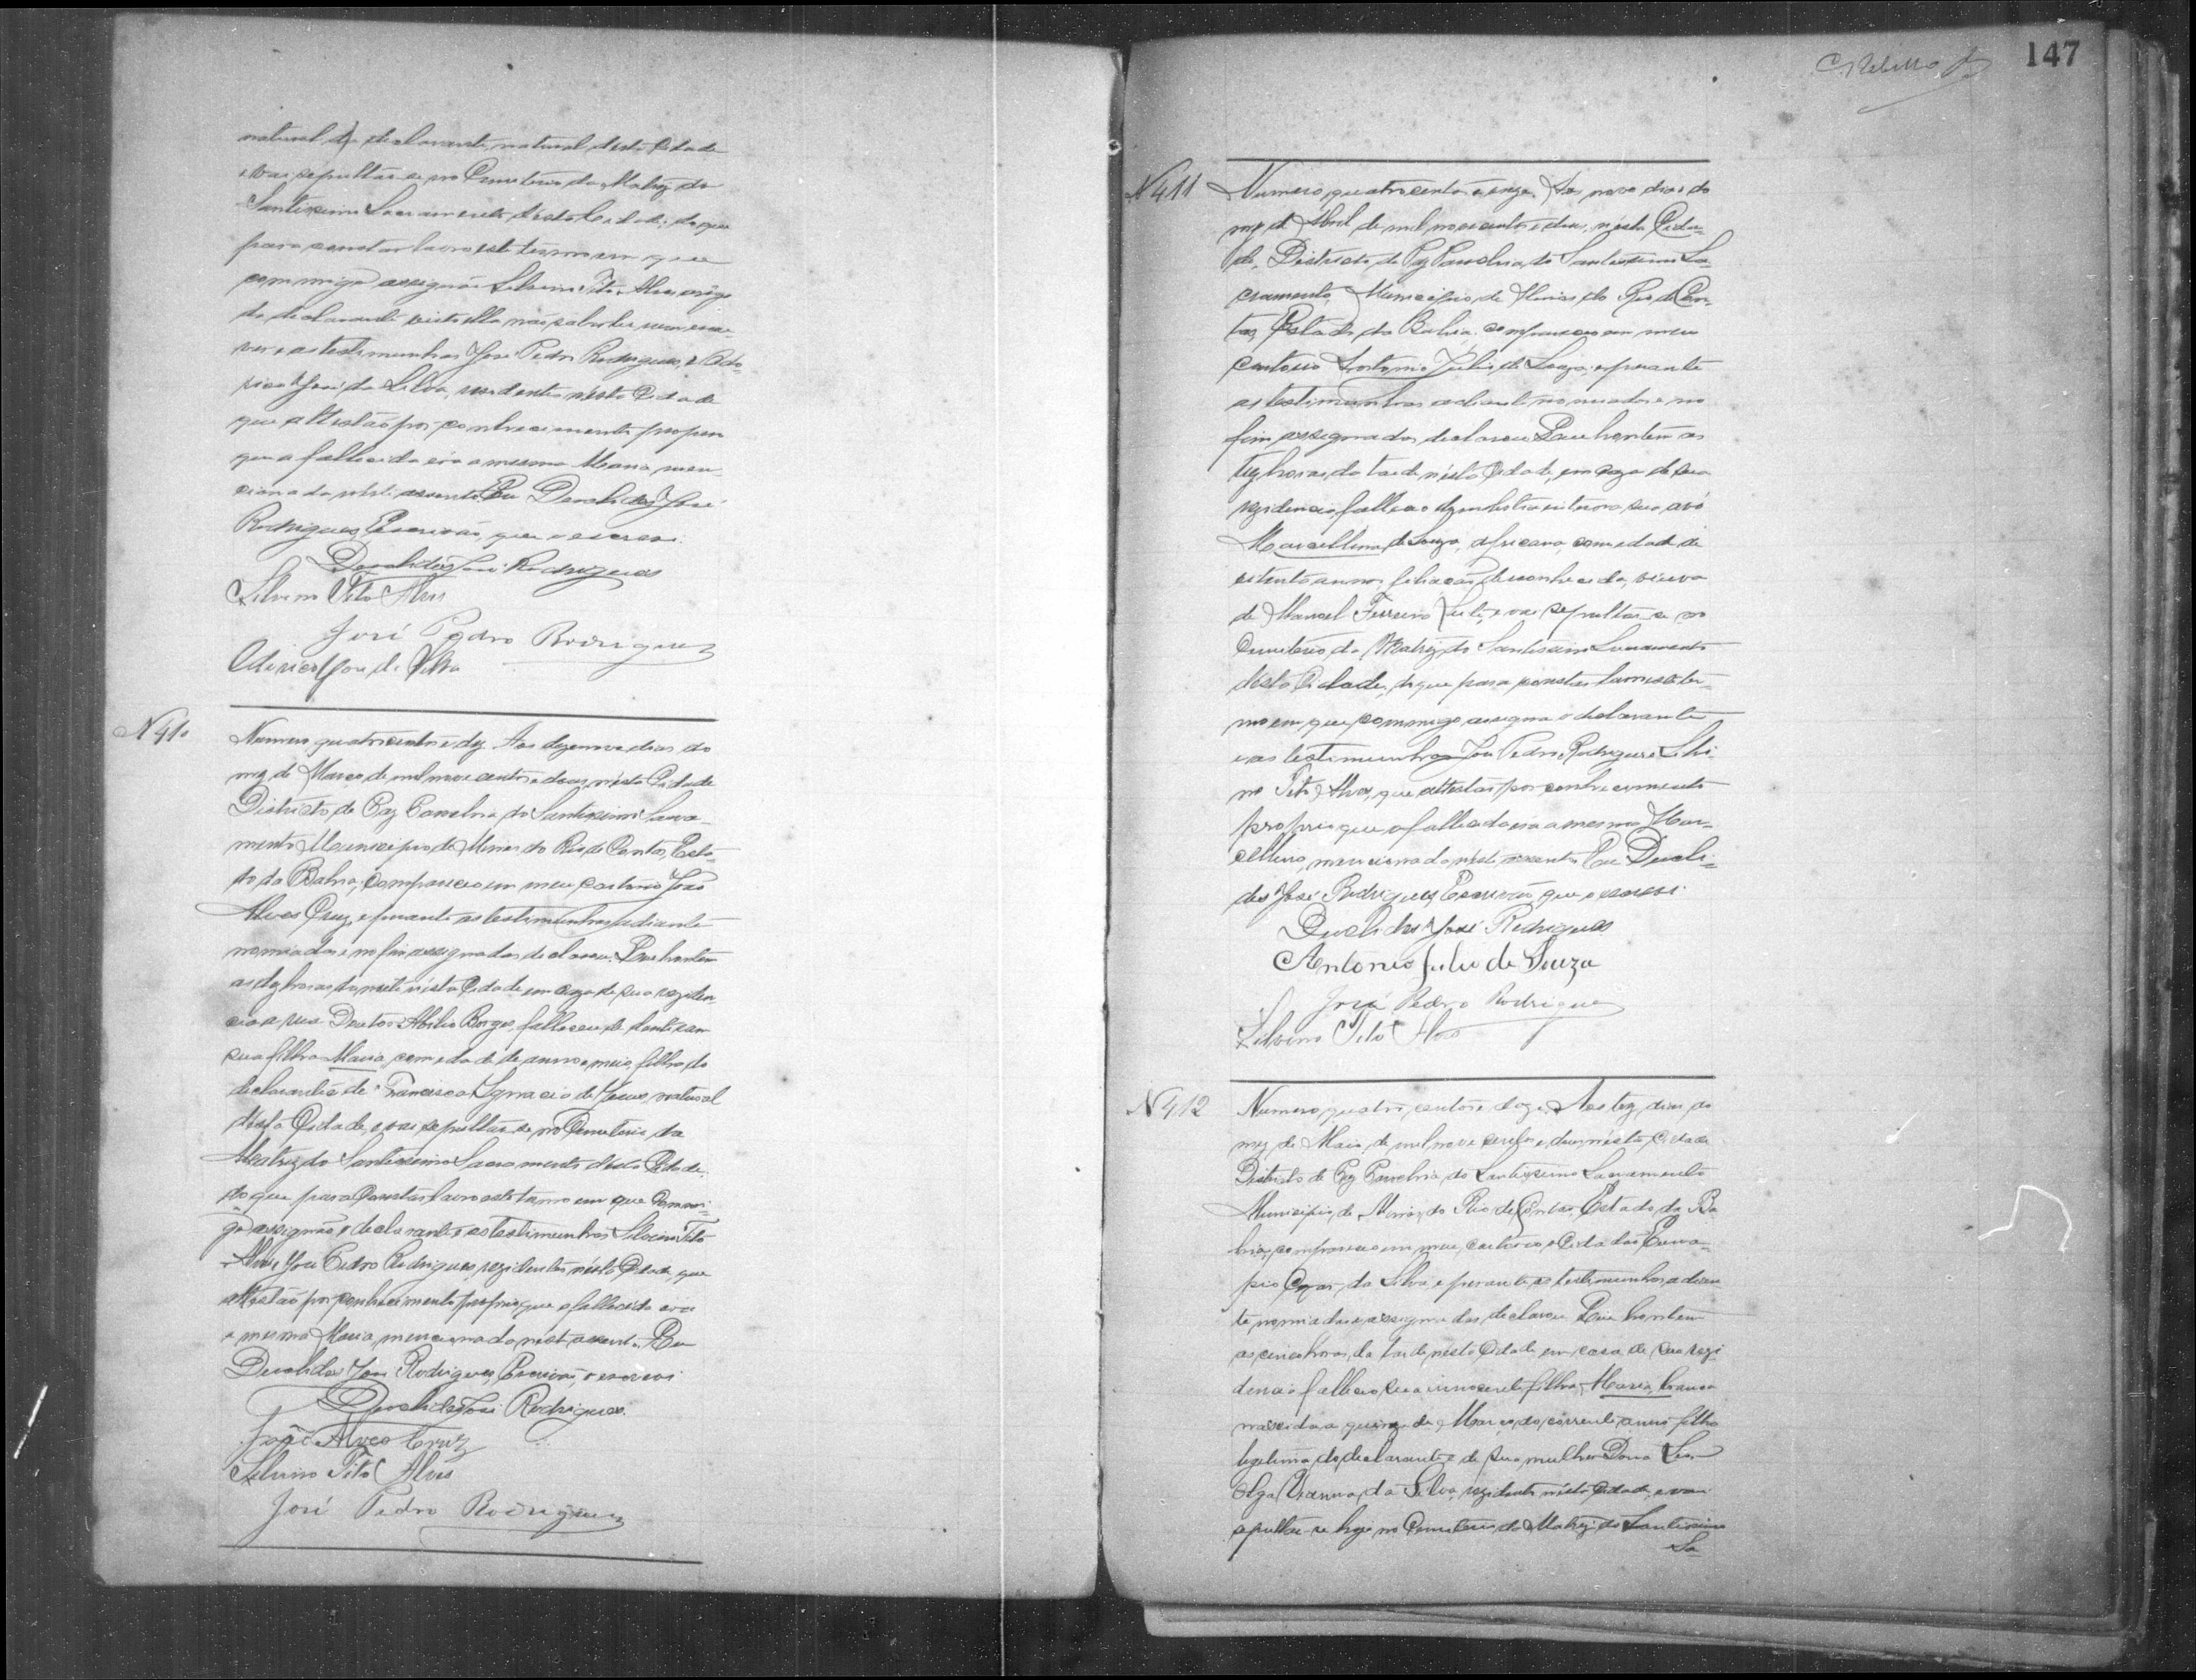 natural da declarante, natural desta Cidade
e vai sepultar-se no Cemiterio da Matriz do
Santissimo Sacramento desta Cidade; do que
para constar lavro este termo em que
commigo assignão Silvino Tito Alves arogo
da declarante visto ella não saber ler nem escre-
ver e as testimunhas José Pedro Rodrigues, e
José da Silva, residentes nésta Cidade
que attestão por conhecimento proprio
que a fallecida éra a mesma Maria, men-
cionada néste assento. Eu Duclides José
Rodrigues, Escrivão, que o escrevi.
Duclides José Rodrigues
Silvino Tito Alves
José Pedro Rodrigues
José da Silva
N 410
Numero quatrocentos e dez. Aos dezenove dias do
mez de Março de mil novecentos e dous, nésta Cidade
Districto de Paz Parochia do Santissimo Sacra-
mento Municipio de Minas do Rio de Contas, Esta-
do da Bahia, compareceo em meu cartorio João
Alves Cruz, e perante as testimunhas adiante
nomiadas e no fim assignadas declarou: Que hontem
as dez horas da noite nésta Cidade em caza de sua reziden-
cia a rua Doutor Abilio Borges, falleceu de
sua filha Maria, com edade de anno e meio, filha do
declarante e de Francisca Ignacia de Jesus, natural
désta Cidade, e vai sepultar-se no Cemiterio da
Matriz do Santissimo Sacramento désta Cidade.
do que para Constar lavro este termo em que Commi-
go assignão o declarante e as testimunhas Silvino Tito
Alves e José Pedro Rodrigues, rezidentes nésta Cidade, que
attestão por conhecimento proprio, que a fallecida éra
a mesma Maria, mencionada neste assento. Eu
Duclides José Rodrigues, Escrivão, o escrevi
Duclides José Rodrigues.
João Alves Cruz
Silvino Tito Alves
José Pedro Rodrigues
147
N 411
Numero quatrocentos e onze. Aos nove dias do
mez de Abril de mil novecentos e dous, nésta Cida-
de, Districto de Paz Parochia do Santissimo Sa-
cramento, Municipio de Minas do Rio de Con-
tas, Estado da Bahia, compareceo em meu
cartorio Antonio Julio de Souza, e perante
as testimunhas adiante nomeadas e no
fim assignadas declarou: Que hontem as
trez horas da tarde nésta Cidade, em caza de sua
rezidencia, falleceo sua avó
Marcellina de Souza, africana, com edade de
oitenta annos, filiação desconhecida, viuva
de Manoel Ferreira e vai sepultar-se no
Cemiterio da Matriz do Santissimo Sacramento
désta Cidade, do que para constar lavro este ter-
mo em que commigo assigna o declarante
e as testimunhas José Pedro Rodrigues e Silvi-
no Tito Alves, que attestão por conhecimento
proprio que a fallecida éra a mesma Mar-
cellina, mencionada néste assento. Eu Ducli-
des José Rodrigues, Escrivão, que o escrevi.
Duclides José Rodrigues
Antonio Julio de Souza
José Pedro Rodrigues
Silvino Tito Alves
N 412
Numero quatro centos e doze. Aos trez dias do
mez de Maio de mil nove centos e dous, nésta Cidade
Districto de Paz Parochia do Santissimo Sacramento
Municipio de Minas do Rio de Contas, Estado da Ba-
hia, compareceo em meu cartorio o Cidadão
da Silva, e perante as testimunhas adian-
te nomiadas e assignadas, declarou: Que hontem
as cinco horas da tarde nésta Cidade em casa de sua rezi-
dencia falleceo sua innocente filha, Maria, branca
nascida a quinze de Março do corrente anno, filha
legitima do declarante e de sua mulher Dona
Vianna da Silva, rezidente nésta Cidade, e vai
sepultar-se hoje no Cemiterio da Matriz do Santissimo
Sa-